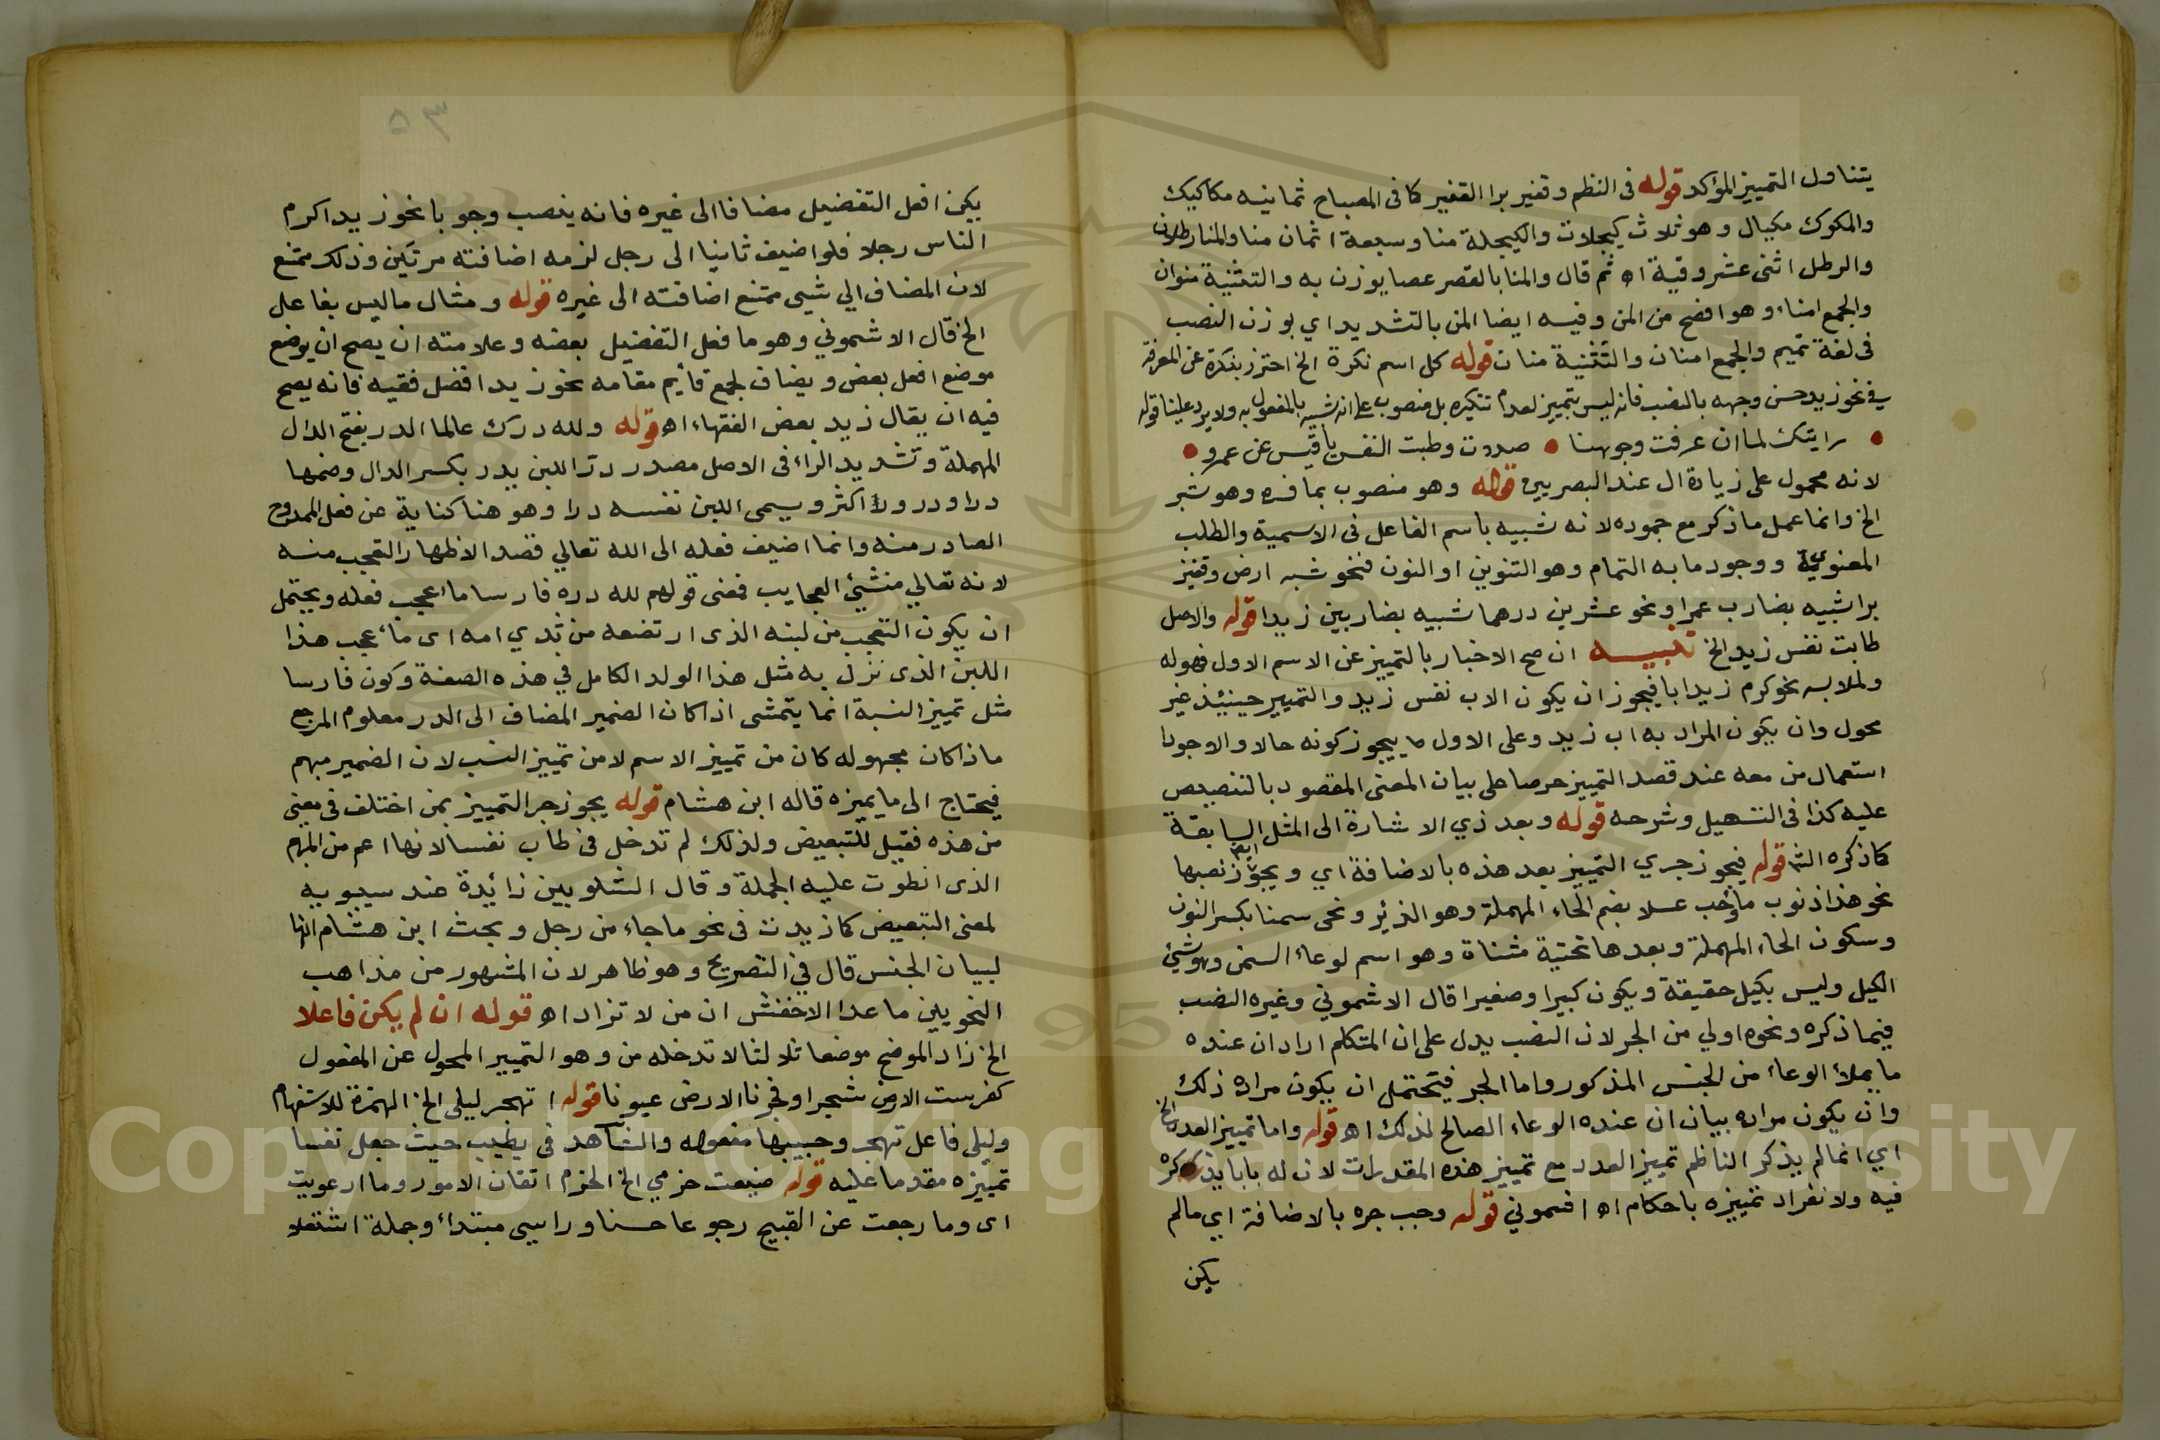 يتناول التمييز المؤكد قوله في النظم وقفيز برا القفيز كما في المصباح ثمانية مكاكيك
والمكوك مكيال وهو ثلاث كيجلات والكيجلة منا وسبعة اثمان منا والمنا رطلان
والرطل اثنى عشر وقية اه ثم قال والمنا بالقصر عصا يوزن به والتثنية منوان
والجمع امناء وهو افصح من المن وفيه ايضا المن بالتشديد اي بوزن النصب
في لغة تميم والجمع امنان والتثنية منان قوله كل اسم نكرة الخ احترز بنكرة عن المعرفة
في نحو زيد حسن وجهه بالنصب فانه ليس بتمييز لعدم تنكيره بل منصوب على انه شبيه بالمفعول به ولا يرد علينا قوله
رايتك لما ان عرفت وجوهنا صددت وطبت النفس يا قيس عن عمرو
لانه محمول على زيادة ال عند البصريين قوله وهو منصوب بما فسره وهو شبر
الخ وانما عمل ما ذكر مع جموده لانه شبيه باسم الفاعل في الاسمية والطلب
المعنوية ووجود ما به التمام وهو التنوين او النون فنحو شبر ارض وقفيز
برا شبيه بضارب عمرا ونحو عشرين درهما شبيه بضاربين زيدا قوله والاصل
طابت نفس زيد الخ تنبيه ان صح الاخبار بالتمييز عن الاسم الاول فهو له
ولملابسه نحو كرم زيد ابا فيجوز ان يكون الاب نفس زيد والتمييز حينئذ غير
محول وان يكون المراد به اب زيد وعلى الاول يجوز كونه حالا والاجود
استعمال من معه عند قصد التمييز حرصا على بيان المعنى المقصود بالتنصيص
عليه كذا في التسهيل وشرحه قوله وبعد ذي الاشارة الى المثل السابقة
كما ذكره الش قوله فيجوز جري التمييز بعد هذه بالاضافة اي ويجوز ايضا نصبها
نحو هذا ذنوب ماء وحب عسلا بضم الحاء المهملة وهو الذئر ونحى سمنا بكسر النون
وسكون الحاء المهملة وبعدها تحتية مثناة وهو اسم لوعاء السمن وهو شئ
الكيل وليس بكيل حقيقة ويكون كبيرا وصغيرا قال الاشموني وغيره النصب
فيما ذكره ونحوه اولي من الجر لان النصب يدل على ان المتكلم اراد ان عنده
ما يملأ الوعاء من الجنس المذكور واما الجر فيحتمل ان يكون مراده ذلك
وان يكون مراده بيان ان عنده الوعاء الصالح لذلك اه قوله واما تمييز العدد الخ
اي انما لم يذكر الناظم تمييز العدد مع تمييز هذه المقدرات لان له بابا يذكره
فيه ولانفراد تمييزه باحكام اه اشموني قوله وجب جره بالاضافة اي ما لم
يكن
٥٣
يكن افعل التفضيل مضافا الى غيره فانه ينصب وجوبا نحو زيد اكرم
الناس رجلا فلو اضيف ثانيا الى رجل لزمه اضافته مرتين وذلك ممتنع
لان المضاف الي شيى ممتنع اضافته الى غيره قوله ومثال ما ليس بفاعل
الخ قال الاشموني وهو ما فعل التفضيل بعضه وعلامته ان يصح ان يوضع
موضع افعل بعض ويضاف لجمع قائم مقامه نحو زيد افضل فقيه فانه يصح
فيه ان يقال زيد بعض الفقهاء اه قوله ولله درك عالما الدر بفتح الدال
المهملة وتشديد الراء في الاصل مصدر در اللبن يدر بكسر الدال وضمها
درا ودرورا اكثر ويسمى اللبن نفسه درا وهو هنا كناية عن فعل الممدوح
الصادر منه وانما اضيف فعله الى الله تعالي قصد الاظهار التعجب منه
لانه تعالي منشئ العجايب فمعنى قولهم لله دره فارسا ما اعجب فعله ويحتمل
ان يكون التعجب من لبنه الذى ارتضعه من ثدي امه اى ما اعجب هذا
اللبن الذى نزل به مثل هذا الولد الكامل في هذه الصفة وكون فارسا
مثل تمييز النسبة انما يتمشى اذا كان الضمير المضاف الى الدر معلوم المرجع
ماذا كان مجهوله كان من تمييز الاسم لا من تمييز النسب لان الضمير مبهم
فيحتاج الى ما يميزه قاله ابن هشام قوله يجوز جر التمييز بمن اختلف في معنى
من هذه فقيل للتبعيض ولذلك لم تدخل في طاب نفسا لانها اعم من المبهم
الذى انطوت عليه الجملة وقال الشلوبين زائدة عند سيبويه
لمعنى التبعيض كما زيدت في نحو ما جاء من رجل وبحث ابن هشام انها
لبيان الجنس قال في التصريح وهو ظاهر لان المشهور من مذاهب
النحويين ما عدا الاخفش ان من لا تزاد اه قوله ان لم يكن فاعلا
الخ زاد الموضح موضعا ثالثا لا تدخله من وهو التمييز المحول عن المفعول
كغرست الارض شجرا وفجرنا الارض عيونا قوله اتهجر ليلى الخ الهمزة للاستفهام
وليلى فاعل تهجر وحبيبها مفعوله والشاهد في يطيب حيث جعل نفسا
تمييزه مقدما عليه قوله ضيعت حزمي الخ الحزم اتقان الامور وما ارعويت
اى وما رجعت عن القبيح رجوعا حسنا وراسي مبتدأ وجملة اشتعلا